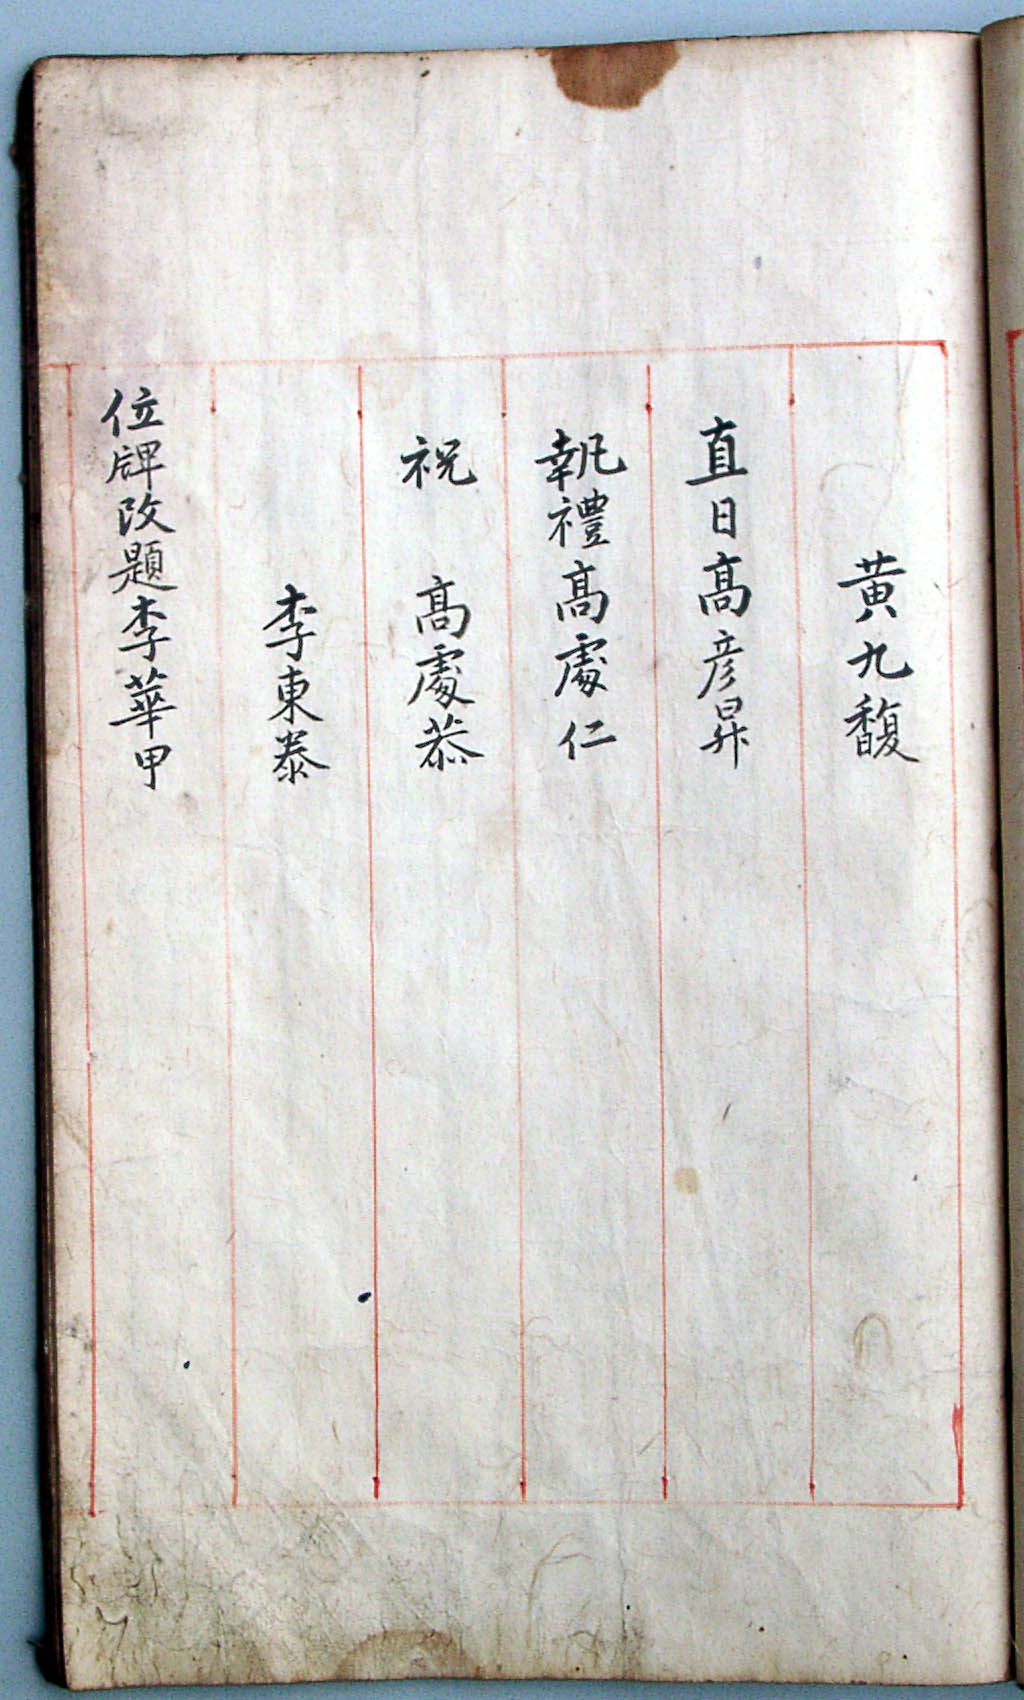 黃九馥
直日高彦昇
執禮高處仁
祝 高處恭
李東泰
位牌改題李華甲